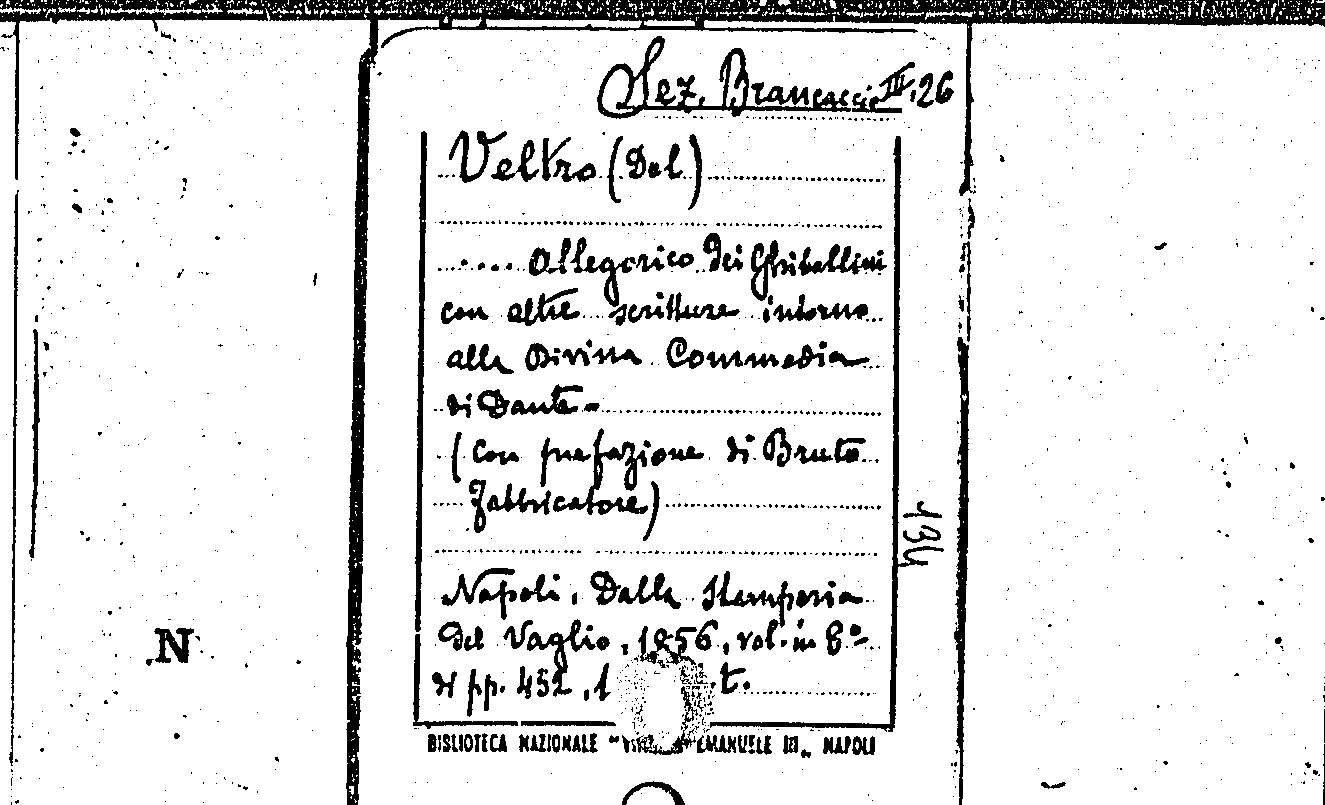 Sez. Brancaccio III, 26
Veltro (Del)
.... Allegorico dei Ghibellini
con altre scritture intorno
alla Divina Commedia
di Dante -
(Con prefazione di Bruto
Fabbricatore)
134
Napoli, Dalla Stamperia
del Vaglio, 1856, vol. in 8º
di pp. 452, 1 t.
N
BIBLIOTECA NAZIONALE " EMANUELE III„ NAPOLI